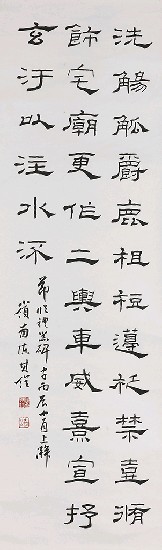 洗觴觚爵鹿柤梪籩柉禁壺脩
飾宅廟更作二輿車威熹宣抒
玄汙以注水流
節臨禮器碑 丙辰十月上澣
嶺南